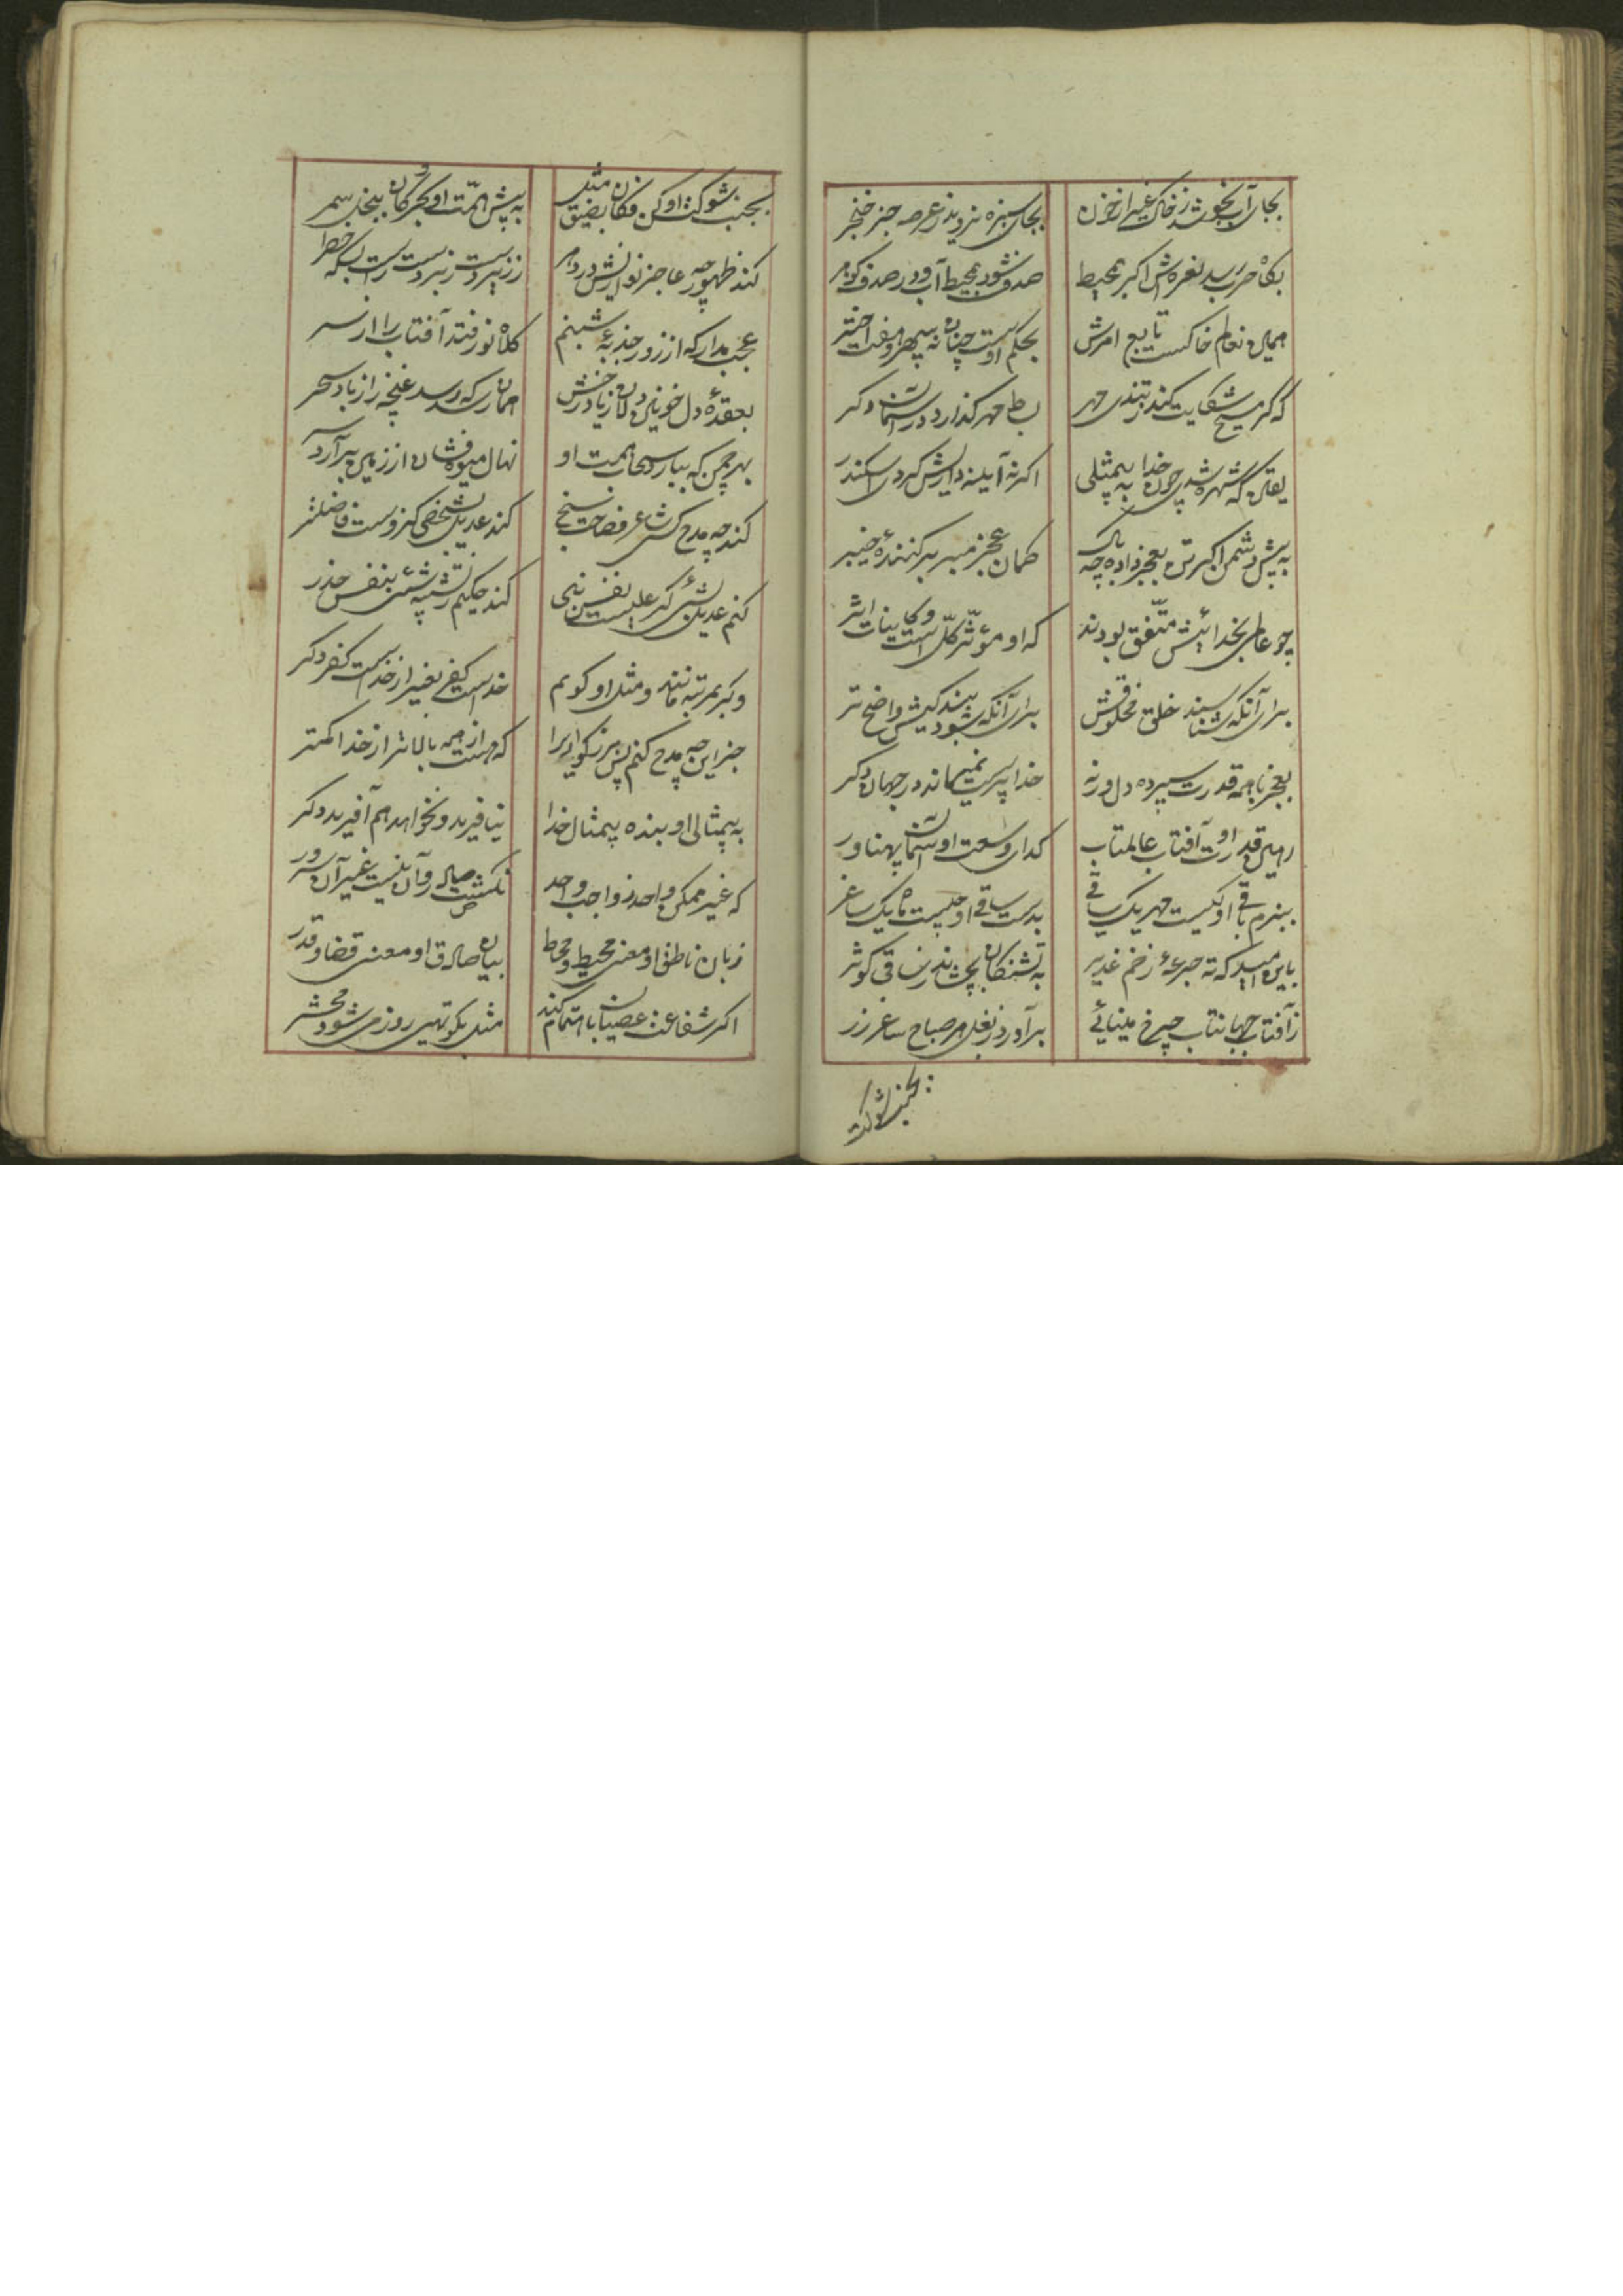 بجای آب نجوشد ز خاک غیر از خون
بجای سبزه نروید ز عرصه جز خنجر
بگاه حرب رسد نعره‌اش اگر بمحیط
صدف شود بمحیط آب و در صدف گوهر
همین نه عالم خاکست تابع امرش
بحکم اوست چنان نه سپهر و هفت اختر
که گر مسیح شکایت کند ز تندی مهر
بساط مهر گذارد در آسمان دگر
یقین که شهره شدی چون خدا به بیمثلی
اگر نه آینه دارش کردی اسکندر
به پیش دشمن اکبر تن بعجز داده چه باک
همان عجز مبر بر کنندهٔ خیبر
چو عالمی بخدائیش متفق بودند
که او مؤثر کل است و کاینات اثر
برای آنکه شناسند خلق مخلوقش
برای آنکه شود بندگیش واضح تر
بعجز با همه قدرت سپرده دل ورنه
خدا پرست نمیماند در جهان دگر
رهین قدرت او آفتاب عالمتاب
گدای وسعت او آسمان پهناور
ببزم باقی او کیست مهر یک ساقی
بدست ساقی او چیست ماه یک ساغر
باین امید که ته جرعهٔ ز خم غدیر
به تشنگان بچشاند ز ساقی کوثر
ز آفتاب جهانتاب چرخ مینائی
برآورد ز بغل هر صباح ساغر زر
بجنب شوکت
بجنب شوکت او کن فکان بضیق مثل
به پیش همت او بحر و کان ببخل سمر
کند ظهور چه عاجز نوازیش در دهر
ز زیردست زبردست راست بسکه خطر
عجب مدار که از زور جذبهٔ شبنم
کلاه نور فتد آفتاب را از سر
بعقدهٔ دل خونین دلان ز یاد رخش
همان رسد که رسد غنچه را ز باد سحر
بهر چمن که ببارد سحاب همت او
نهال میوه فشان از زمین برآرد سر
کند چه مدح کسی شاعر فصاحت سنج
کند عدیل بشخصی کزوست فاضلتر
کنم عدیل بشیئی گر علیست نفس نبی
کند حکیم ز تشبیه شئی بنفس حذر
وگر بمرتبه مانند و مثل او گویم
خداست کیفر بغیر از خداست کفر دگر
جز این چه مدح کنم پس بزرگواری را
که هست از همه بالاتر از خدا کمتر
به بیمثالی او بنده بیمثال خدا
نیافرید و نخواهد هم آفرید دگر
که غیر ممکن واحد ز واجب واحد
نگشت صادر و آن نیست غیر آن سرور
زبان ناطق او معنی محیط و محاط
بیان صادق او معنی قضا و قدر
اگر شفاعت عصیان باهتمام کند
مثل بکوتهی روز می شود محشر